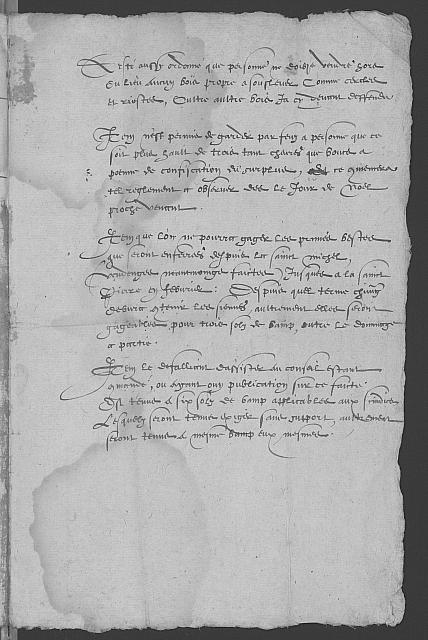 Et est aussy ordonné que personne ne doibje vendre hors
du lieu aucun bois propre a souslever comme cercles
et riostes, oultre aultre bois ja cy devant deffendu
Item n'est permis de garder par feu a personne que ce
soit plus hault de trois tant chieres que boucs a
poenne de confiscation du surplus, et ce commencera
tel reglement a observer dès le jour de Noel
proche venant
Item que lon ne pourra gager les prunes bestes
que seront enferrees despuis la sainct Michel,
vendenges faictes jusques a la sainct
Pierre en febvrier: despuis quel terme chacung
debvra tenir les siennes, aultrement elles seront
gageables pour trois solz de bamp, oultre le dommage
a partie.
Item le defaillant d'assister au conseil estant
commandé, ou ayant ouy publication sur ce faicte.
Est tenus a six solz de bamp applicables aux
Lesquelz seront tenus exiger sans support, aultrement
seront tenus a mesme bamp eux mesmes.